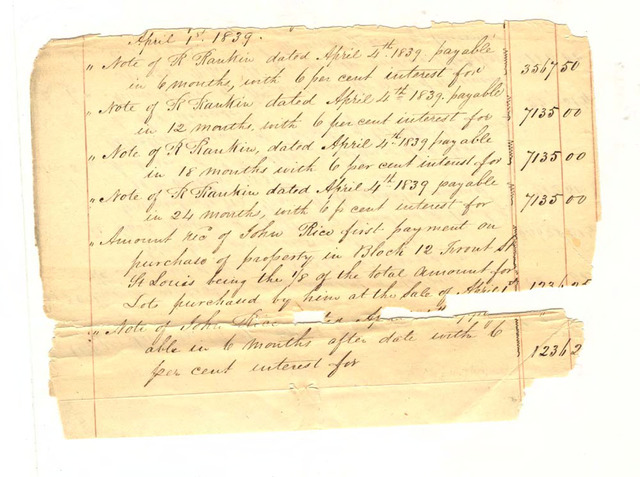 April 1st 1839.
" Note of R Rankin dated April 4th 1839 payable
in 6 months, with 6 per cent interest for 3567 50
" Note of R Rankin dated April 4th 1839. payable
in 12 months with 6 per cent interest for 7135 00
" Note of R Rankin, dated April 4th 1839 payable
in 18 months with 6 per cent interest for 7135 00
" Note of R Rankin dated April 4th 1839 payable
in 24 months, with 6 p cent interest for 7135 00
" Amount rec of John Rice first payment on
purchase of property in Block 12 Front St
St Louis being the 1/8 of the total amount for
Lots purchased by him at the Sale of April 1st
" Note of John Rice
able in 6 months after date with 6
per cent interest for 1236 2